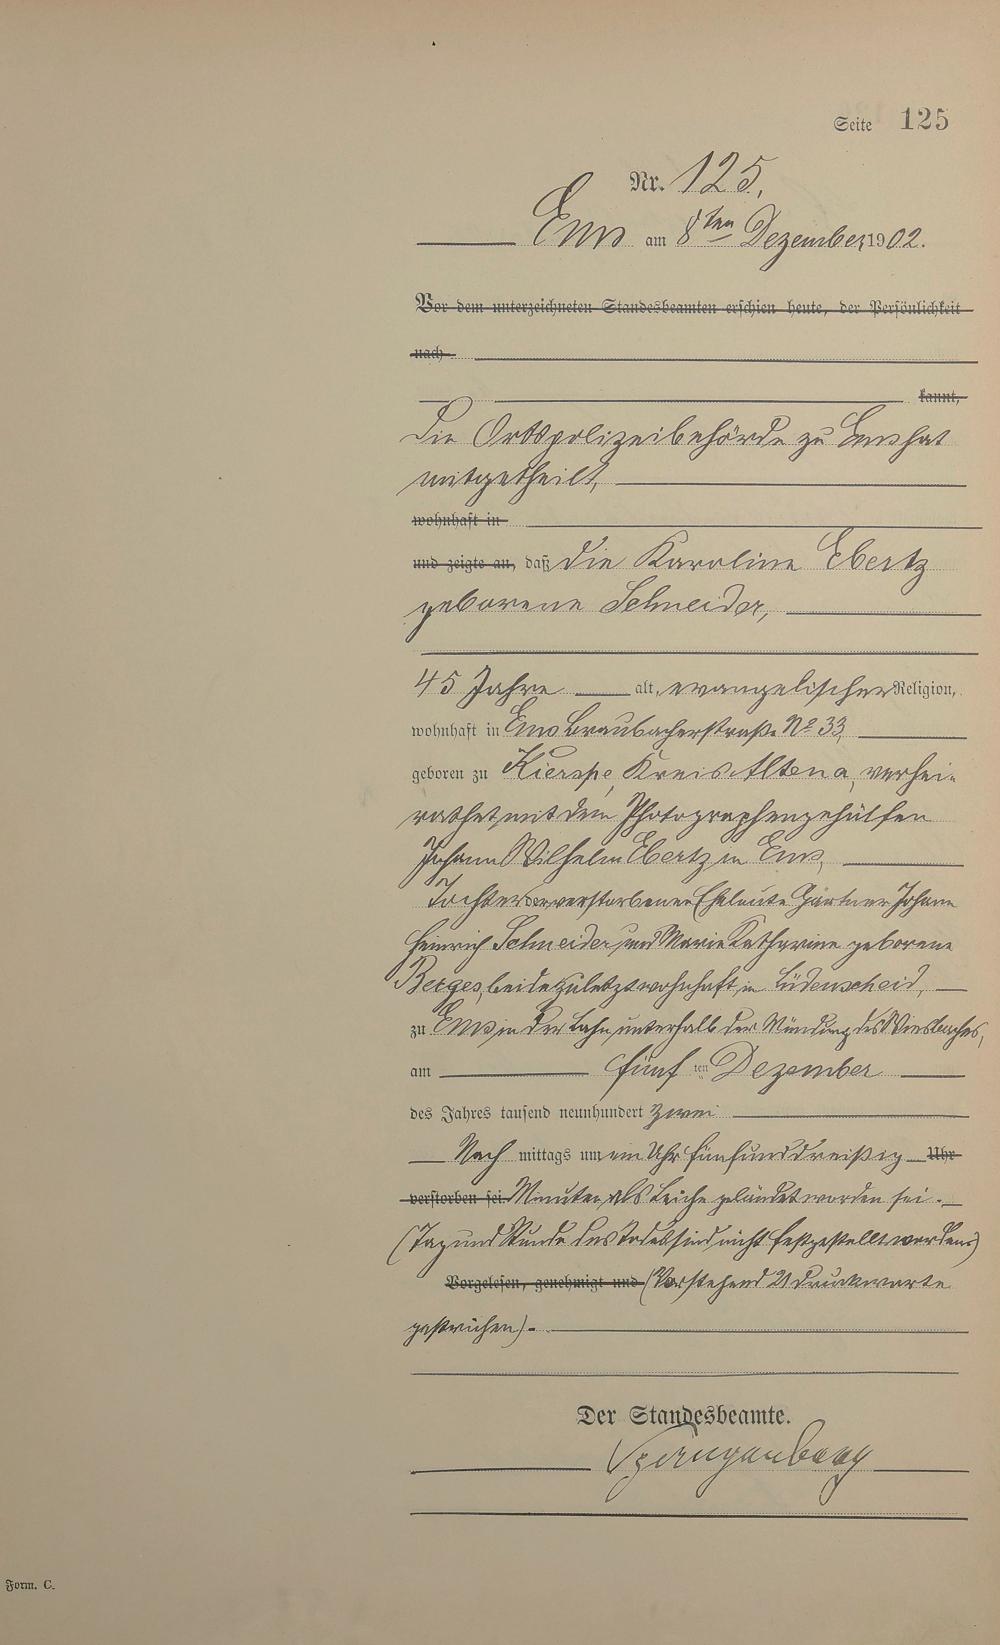 Seite 125
Nr. 125.
Ems am 8ten Dezember 1902.
Vor dem unterzeichneten Standesbeamten erschien heute, der Persönlichkeit
nach
kannt,
Die Ortspolizeibehörde zu Ems hat
mitgetheilt,
wohnhaft in
und zeigte an, daß die Karoline Ebertz
geborene Schneider,
45 Jahre alt, evangelischer Religion,
wohnhaft in Ems Braubacherstraße No 33,
geboren zu Kierspe, Kreis Altena, verhei-
rathet mit dem Photographengehülfen
Johann Wilhelm Ebertz in Ems,
Tochter der verstorbenen Eheleute Gärtner Johann
Heinrich Schneider und Marie Katharine geborene
Berges, beide zuletzt wohnhaft in Lüdenscheid,
zu Ems in der Lahn unterhalb der Mündung des Wiesbaches,
am fünf ten Dezember
des Jahres tausend neunhundert zwei
Nach mittags um ein Uhr fünfunddreißig Uhr
verstorben sei Minuten als Leiche geländet worden sei.
(Tag und Stunde des Todes sind nicht festgestellt worden)
Vorgelesen, genehmigt und (Vorstehend 21 Druckworte
gestrichen).
Der Standesbeamte.
Form. C.